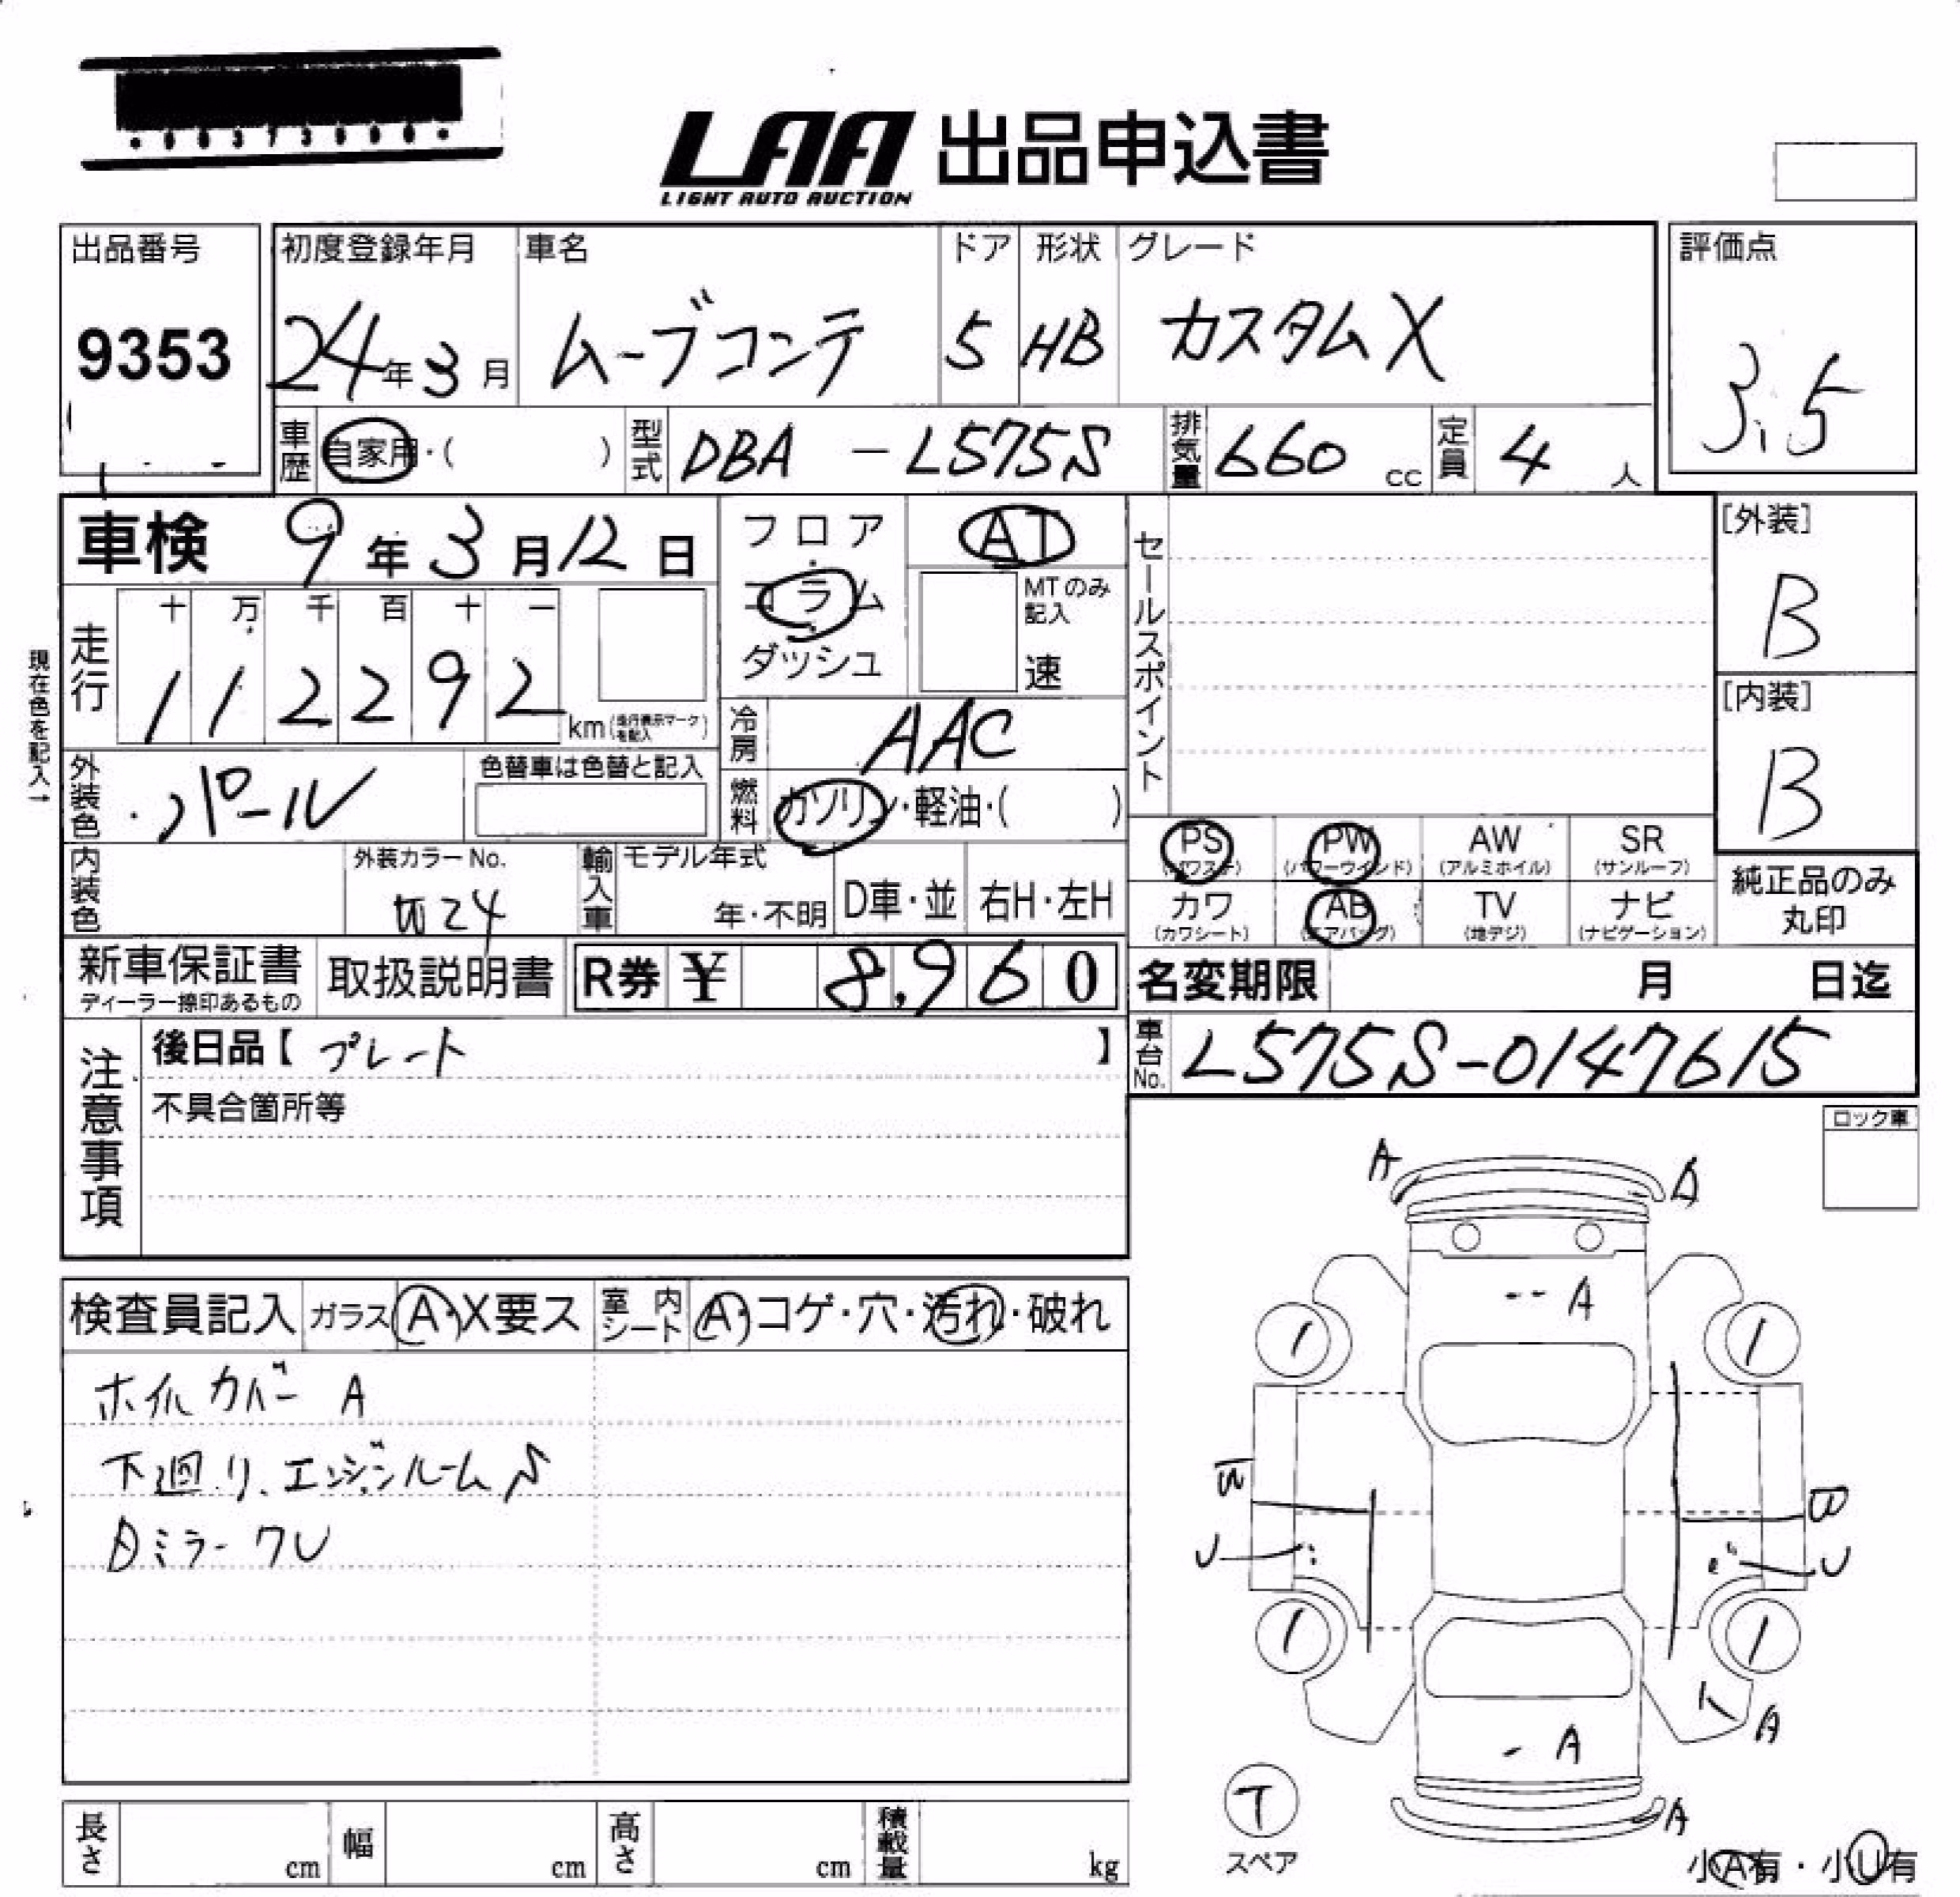 LAA 出品申込書
LIGHT AUTO AUCTION
出品番号 初度登録年月 車名 ドア 形状 グレード 評価点
9353 24年3月 ムーブコンテ 5 HB カスタムX 3.5
車歴 自家用・( ) 型式 DBA-L575S 排気量 660 cc 定員 4 人
車検 9年3月12日 フロア・コラム・ダッシュ AT セールスポイント [外装]
B
MTのみ記入
速
現在色を記入→
走行 十 万 千 百 十 一
1 1 2 2 9 2 km(走行表示マークを記入)
[内装]
B
冷房 AAC
外装色 パール 色替車は色替と記入 燃料 ガソリン・軽油・( )
PS (パワステ) PW (パワーウインド) AW (アルミホイル) SR (サンルーフ)
カワ (カワシート) AB (エアバッグ) TV (地デジ) ナビ (ナビゲーション)
純正品のみ
丸印
内装色 外装カラーNo. W24 輸入車 モデル年式 年・不明 D車・並 右H・左H
新車保証書 取扱説明書 R券 ¥ 8,960 名変期限 月 日迄
ディーラー捺印あるもの
注意事項 後日品【 プレート 】 車台No. L575S-0147615
不具合箇所等
ロック車
A A
A
検査員記入 ガラス A・X要ス 室内シート A・コゲ・穴・汚れ・破れ
ホイルカバー A
下廻り、エンジンルーム S
U U
A
A
T
スペア
A
小A有・小U有
長さ cm 幅 cm 高さ cm 積載量 kg